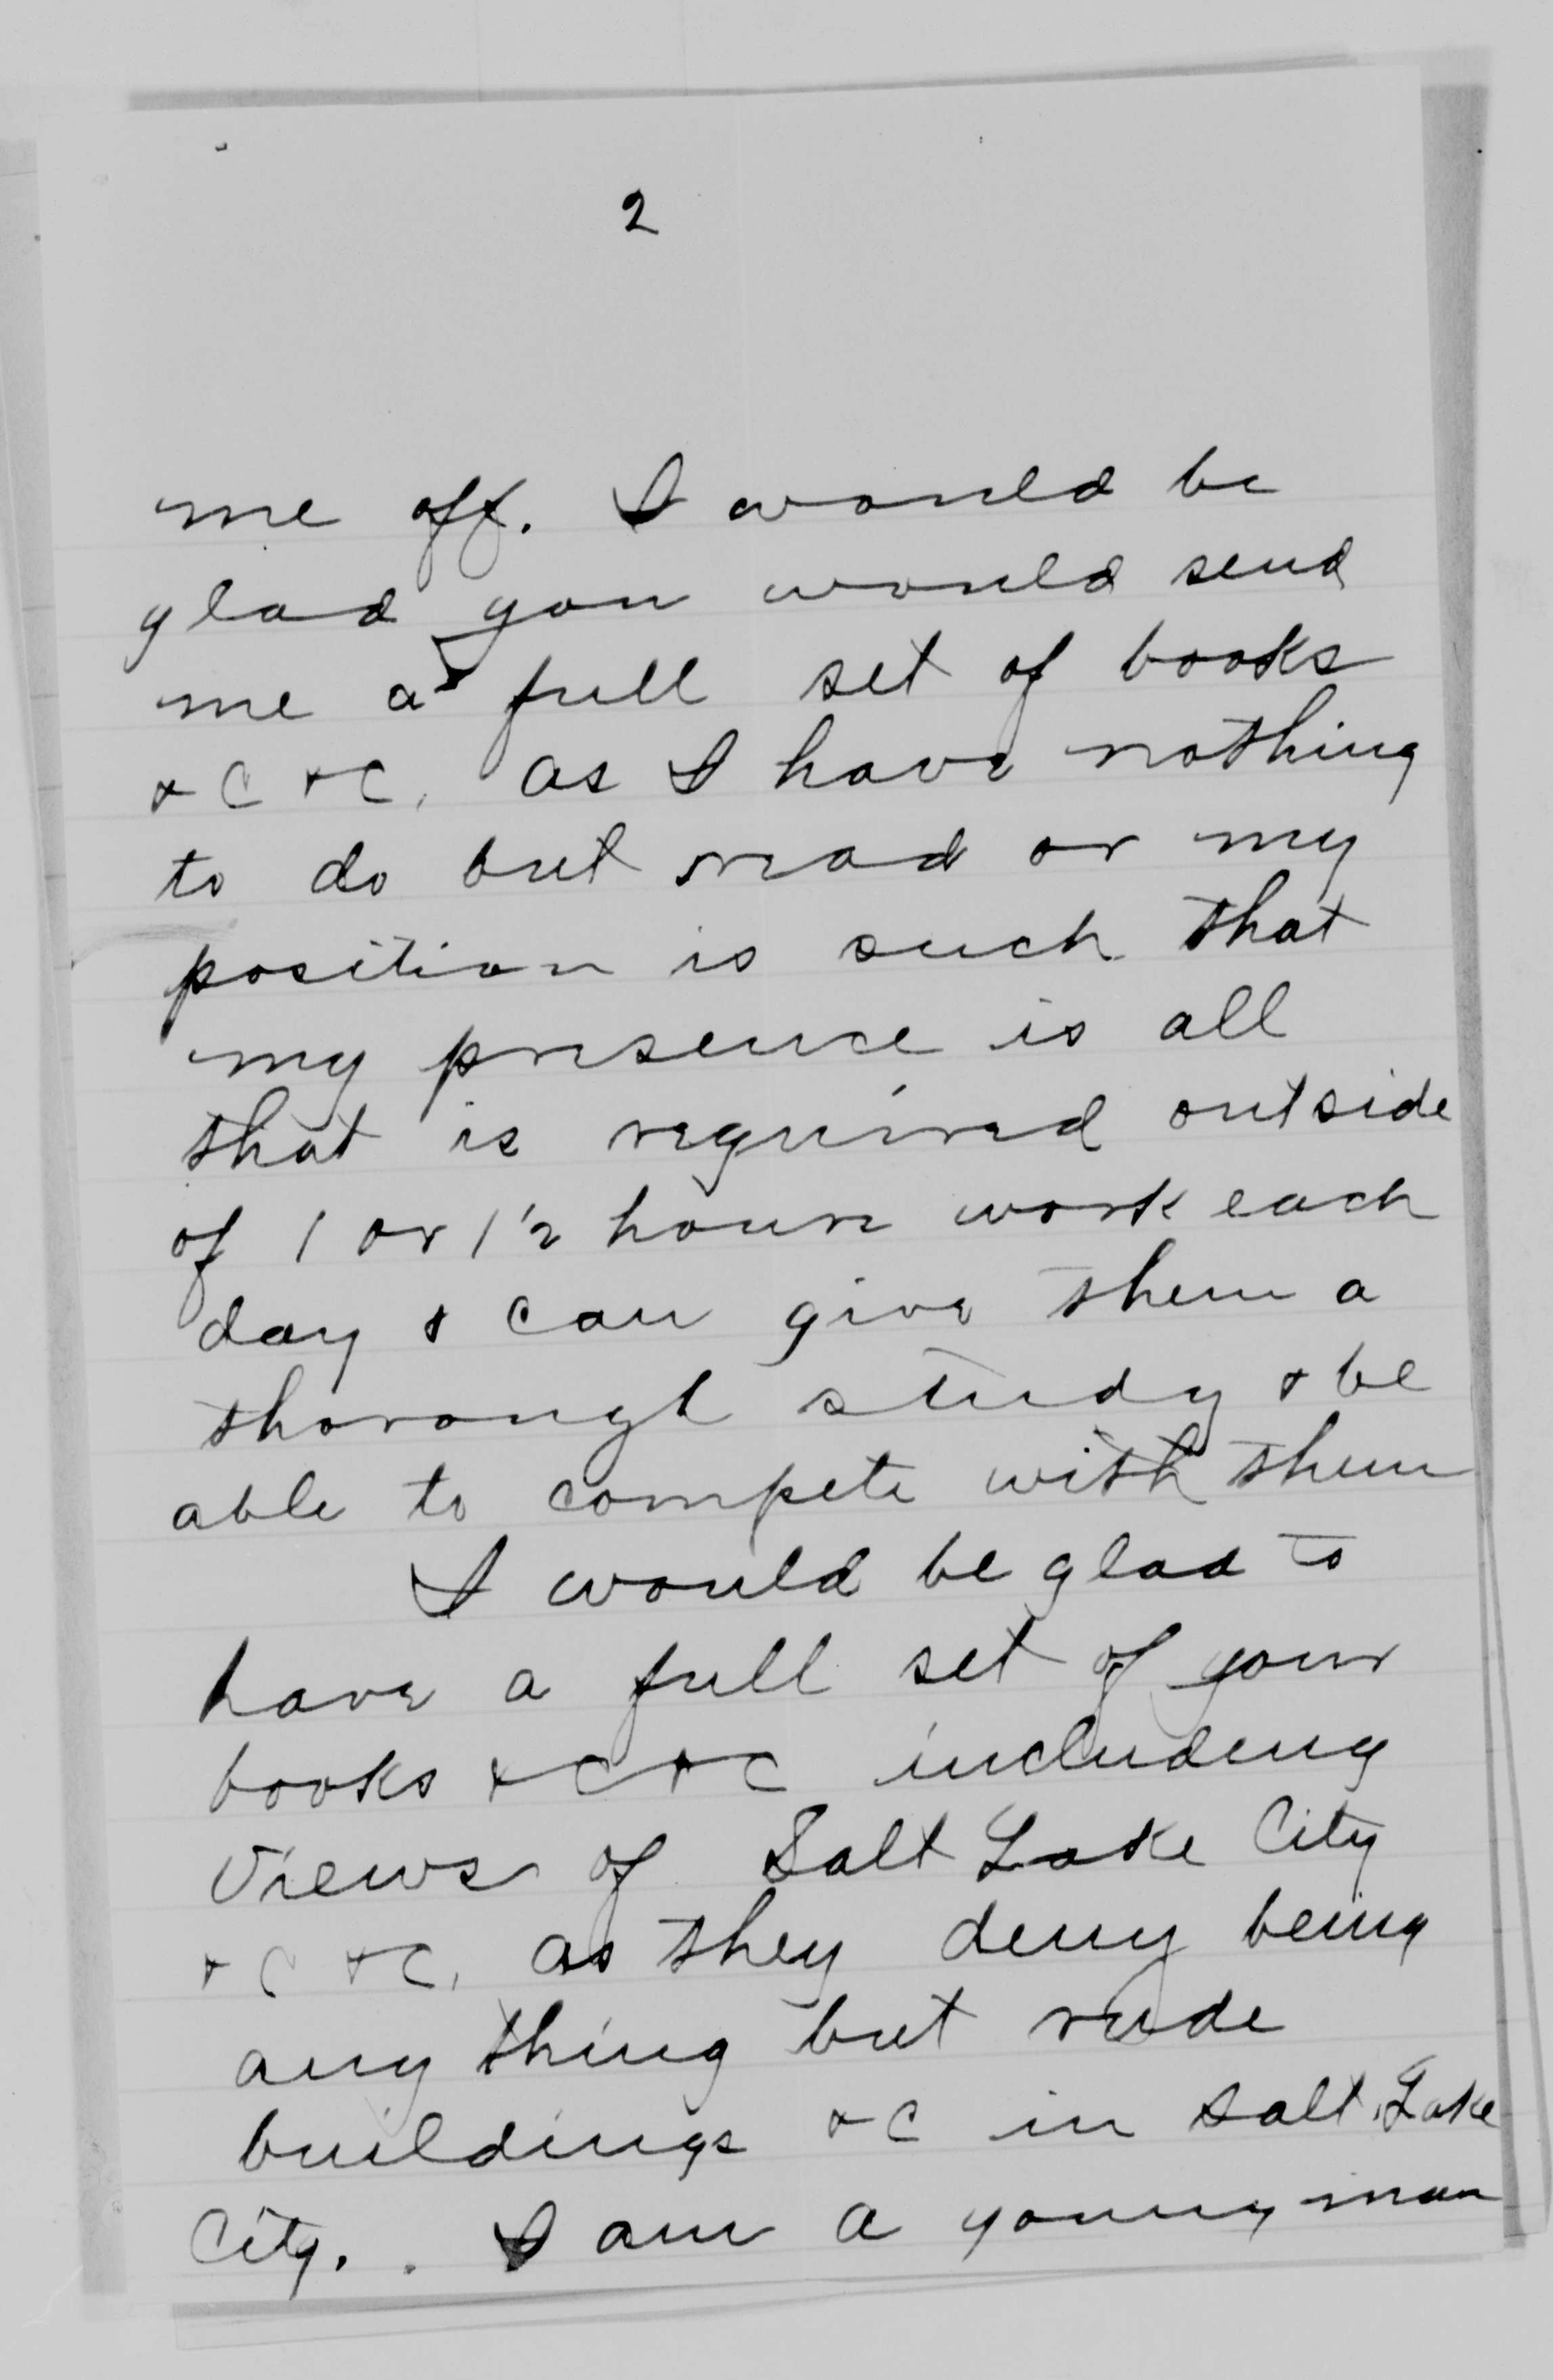 2
me off. I would be
glad you would send
me a full set of books
&C &C, as I have nothing
to do but read or my
position is such that
my presence is all
that is required outside
of 1 or 1½ hours work each
day & can give them a
thorough study & be
able to compete with them
I would be glad to
have a full set of your
books &C &C including
Views of Salt Lake City
&C &C, as they deny being
any thing but rude
buildings &C in Salt Lake
City. I am a young man